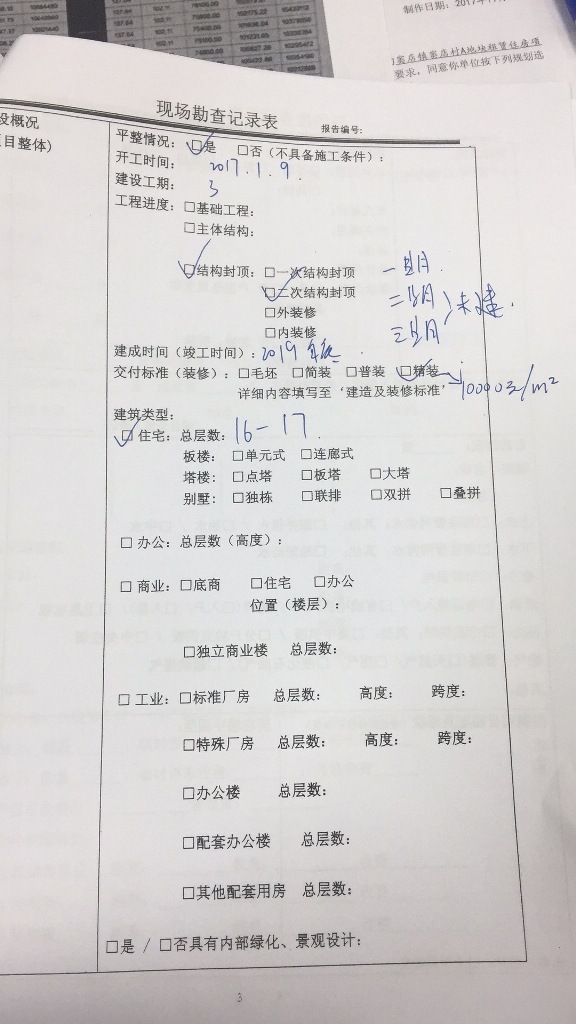 制作日期：2017年11
窦店镇窦店村A地块租赁住房项
要求，同意你单位按下列规划选
现场勘查记录表
报告编号：
设概况
目整体)
平整情况：☑是 □否（不具备施工条件）：
开工时间：2017.1.9.
建设工期：3
工程进度：□基础工程：
□主体结构：
☑结构封顶：□一次结构封顶 一
☑二次结构封顶 二 未建.
□外装修 三
□内装修
建成时间（竣工时间）：2019年底
交付标准（装修）：□毛坯 □简装 □普装 ☑精装
详细内容填写至‘建造及装修标准’ 10000元/m²
建筑类型：
☑住宅：总层数：16-17.
板楼：□单元式 □连廊式
塔楼：□点塔 □板塔 □大塔
别墅：□独栋 □联排 □双拼 □叠拼
□办公：总层数（高度）：
□商业：□底商 □住宅 □办公
位置（楼层）：
□独立商业楼 总层数：
□工业：□标准厂房 总层数： 高度： 跨度：
□特殊厂房 总层数： 高度： 跨度：
□办公楼 总层数：
□配套办公楼 总层数：
□其他配套用房 总层数：
□是 / □否具有内部绿化、景观设计：
3